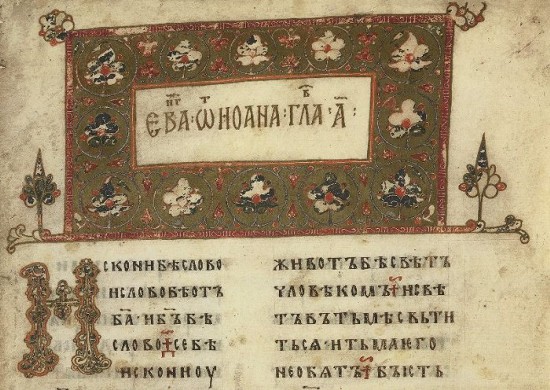 ЕВА · ѾИОАНА · ГЛА · А҃ ·
ИСКОНИБѢСЛОВО
ИСЛОВОБѢОТЪ
БА҃ · ИБ҃ЪБѢ
СЛОВО · СЕБѢ
ИСКОНИОУ
ЖИВОТЪБѢСВѢТЪ
ЧЛОВѢКОМЪ · ИСВѢ
ТЪВЪТЬМѢСВЬТИ
ТЬСѦ · ИТЬМАЕГО
НЕОБѦТЪ · БЪІСТЬ